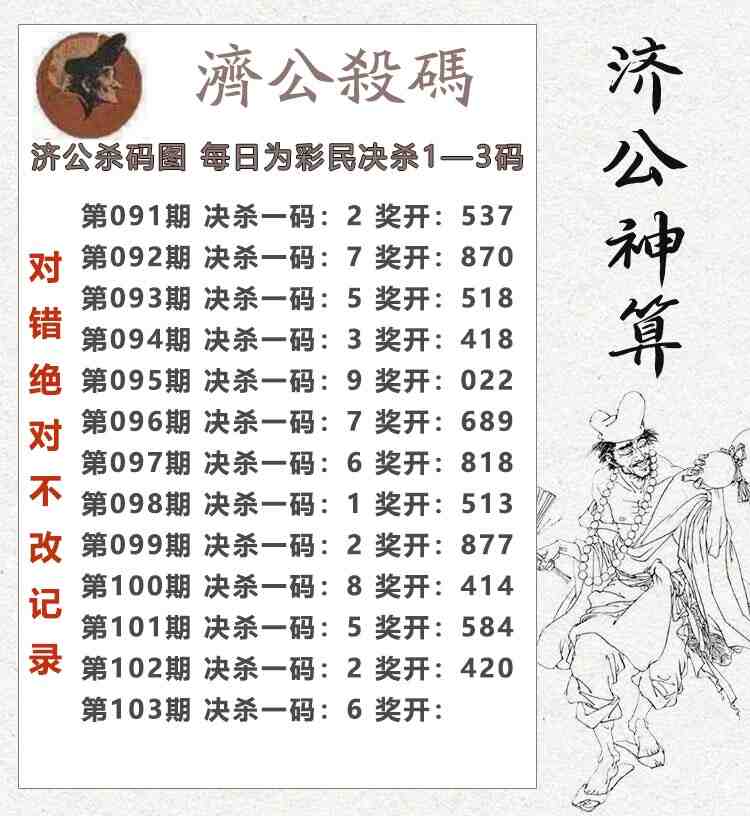 濟公殺碼
济公杀码图 每日为彩民决杀1—3码
第091期 决杀一码：2 奖开：537
第092期 决杀一码：7 奖开：870
第093期 决杀一码：5 奖开：518
第094期 决杀一码：3 奖开：418
第095期 决杀一码：9 奖开：022
第096期 决杀一码：7 奖开：689
第097期 决杀一码：6 奖开：818
第098期 决杀一码：1 奖开：513
第099期 决杀一码：2 奖开：877
第100期 决杀一码：8 奖开：414
第101期 决杀一码：5 奖开：584
第102期 决杀一码：2 奖开：420
第103期 决杀一码：6 奖开：
对错绝对不改记录
济公神算